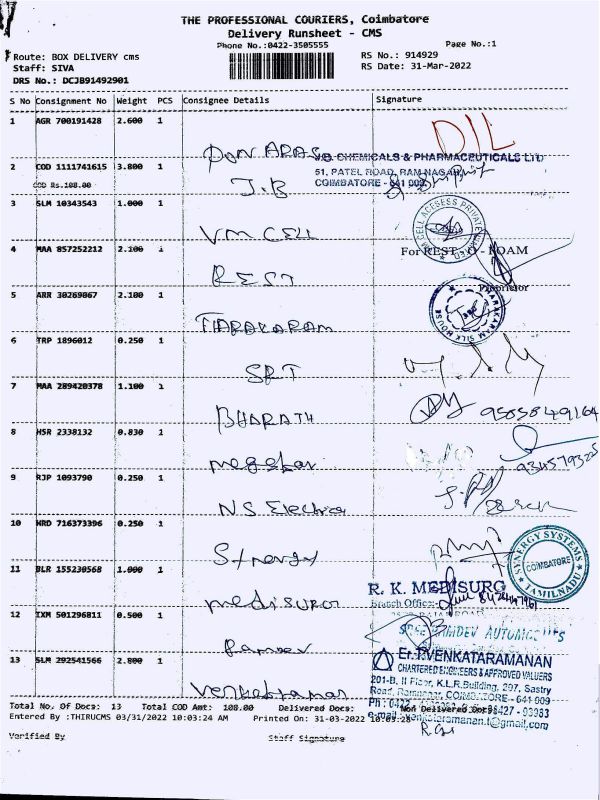 THE PROFESSIONAL COURIERS, Coimbatore
Delivery Runsheet - CMS
Phone No.:0422-3505555 Page No.:1
Route: BOX DELIVERY cms RS No.: 914929
Staff: SIVA RS Date: 31-Mar-2022
DRS No.: DCJB91492901
S No Consignment No Weight PCS Consignee Details Signature
1 AGR 700191428 2.600 1
DIL
2 COD 1111741615 3.800 1 J.B
COD Rs.108.00
J.B. CHEMICALS & PHARMACEUTICALS LTD
51, PATEL ROAD, RAM NAGAR,
COIMBATORE - 641 009.
3 SLM 10343543 1.000 1 VM CELL
M CELL ACSESS PRIVATE
4 MAA 857252212 2.100 1 REST
For REST - O - FOAM
Proprietor
5 ARR 30269067 2.100 1 THARAKARAM
THARAKARAM SILK HOUSE
6 TRP 1896012 0.250 1 SRT
7 MAA 289420378 1.100 1 BHARATH
9585849164
8 HSR 2338132 0.830 1
9 RJP 1093790 0.250 1 NS Electrics
10 WRD 716373396 0.250 1 Synergy
SYNERGY SYSTEMS
COIMBATORE
TAMILNADU
11 BLR 155230568 1.000 1 medisurg
R. K. MEDISURG
Branch Office:
12 IXM 501296811 0.500 1 Ramdev
SREE RAMDEV
13 SLM 292541566 2.800 1 Venkatraman
Er.T.VENKATARAMANAN
CHARTERED ENGINEERS & APPROVED VALUERS
201-B, II Floor, K.L.R.Building, 297, Sastry
Road, Ramnagar, COIMBATORE - 641 009
Total No. Of Docs: 13 Total COD Amt: 108.00 Delivered Docs: Non Delivered Docs:
Entered By :THIRUCMS 03/31/2022 10:03:24 AM Printed On: 31-03-2022 10:03:28
Verified By Staff Signature